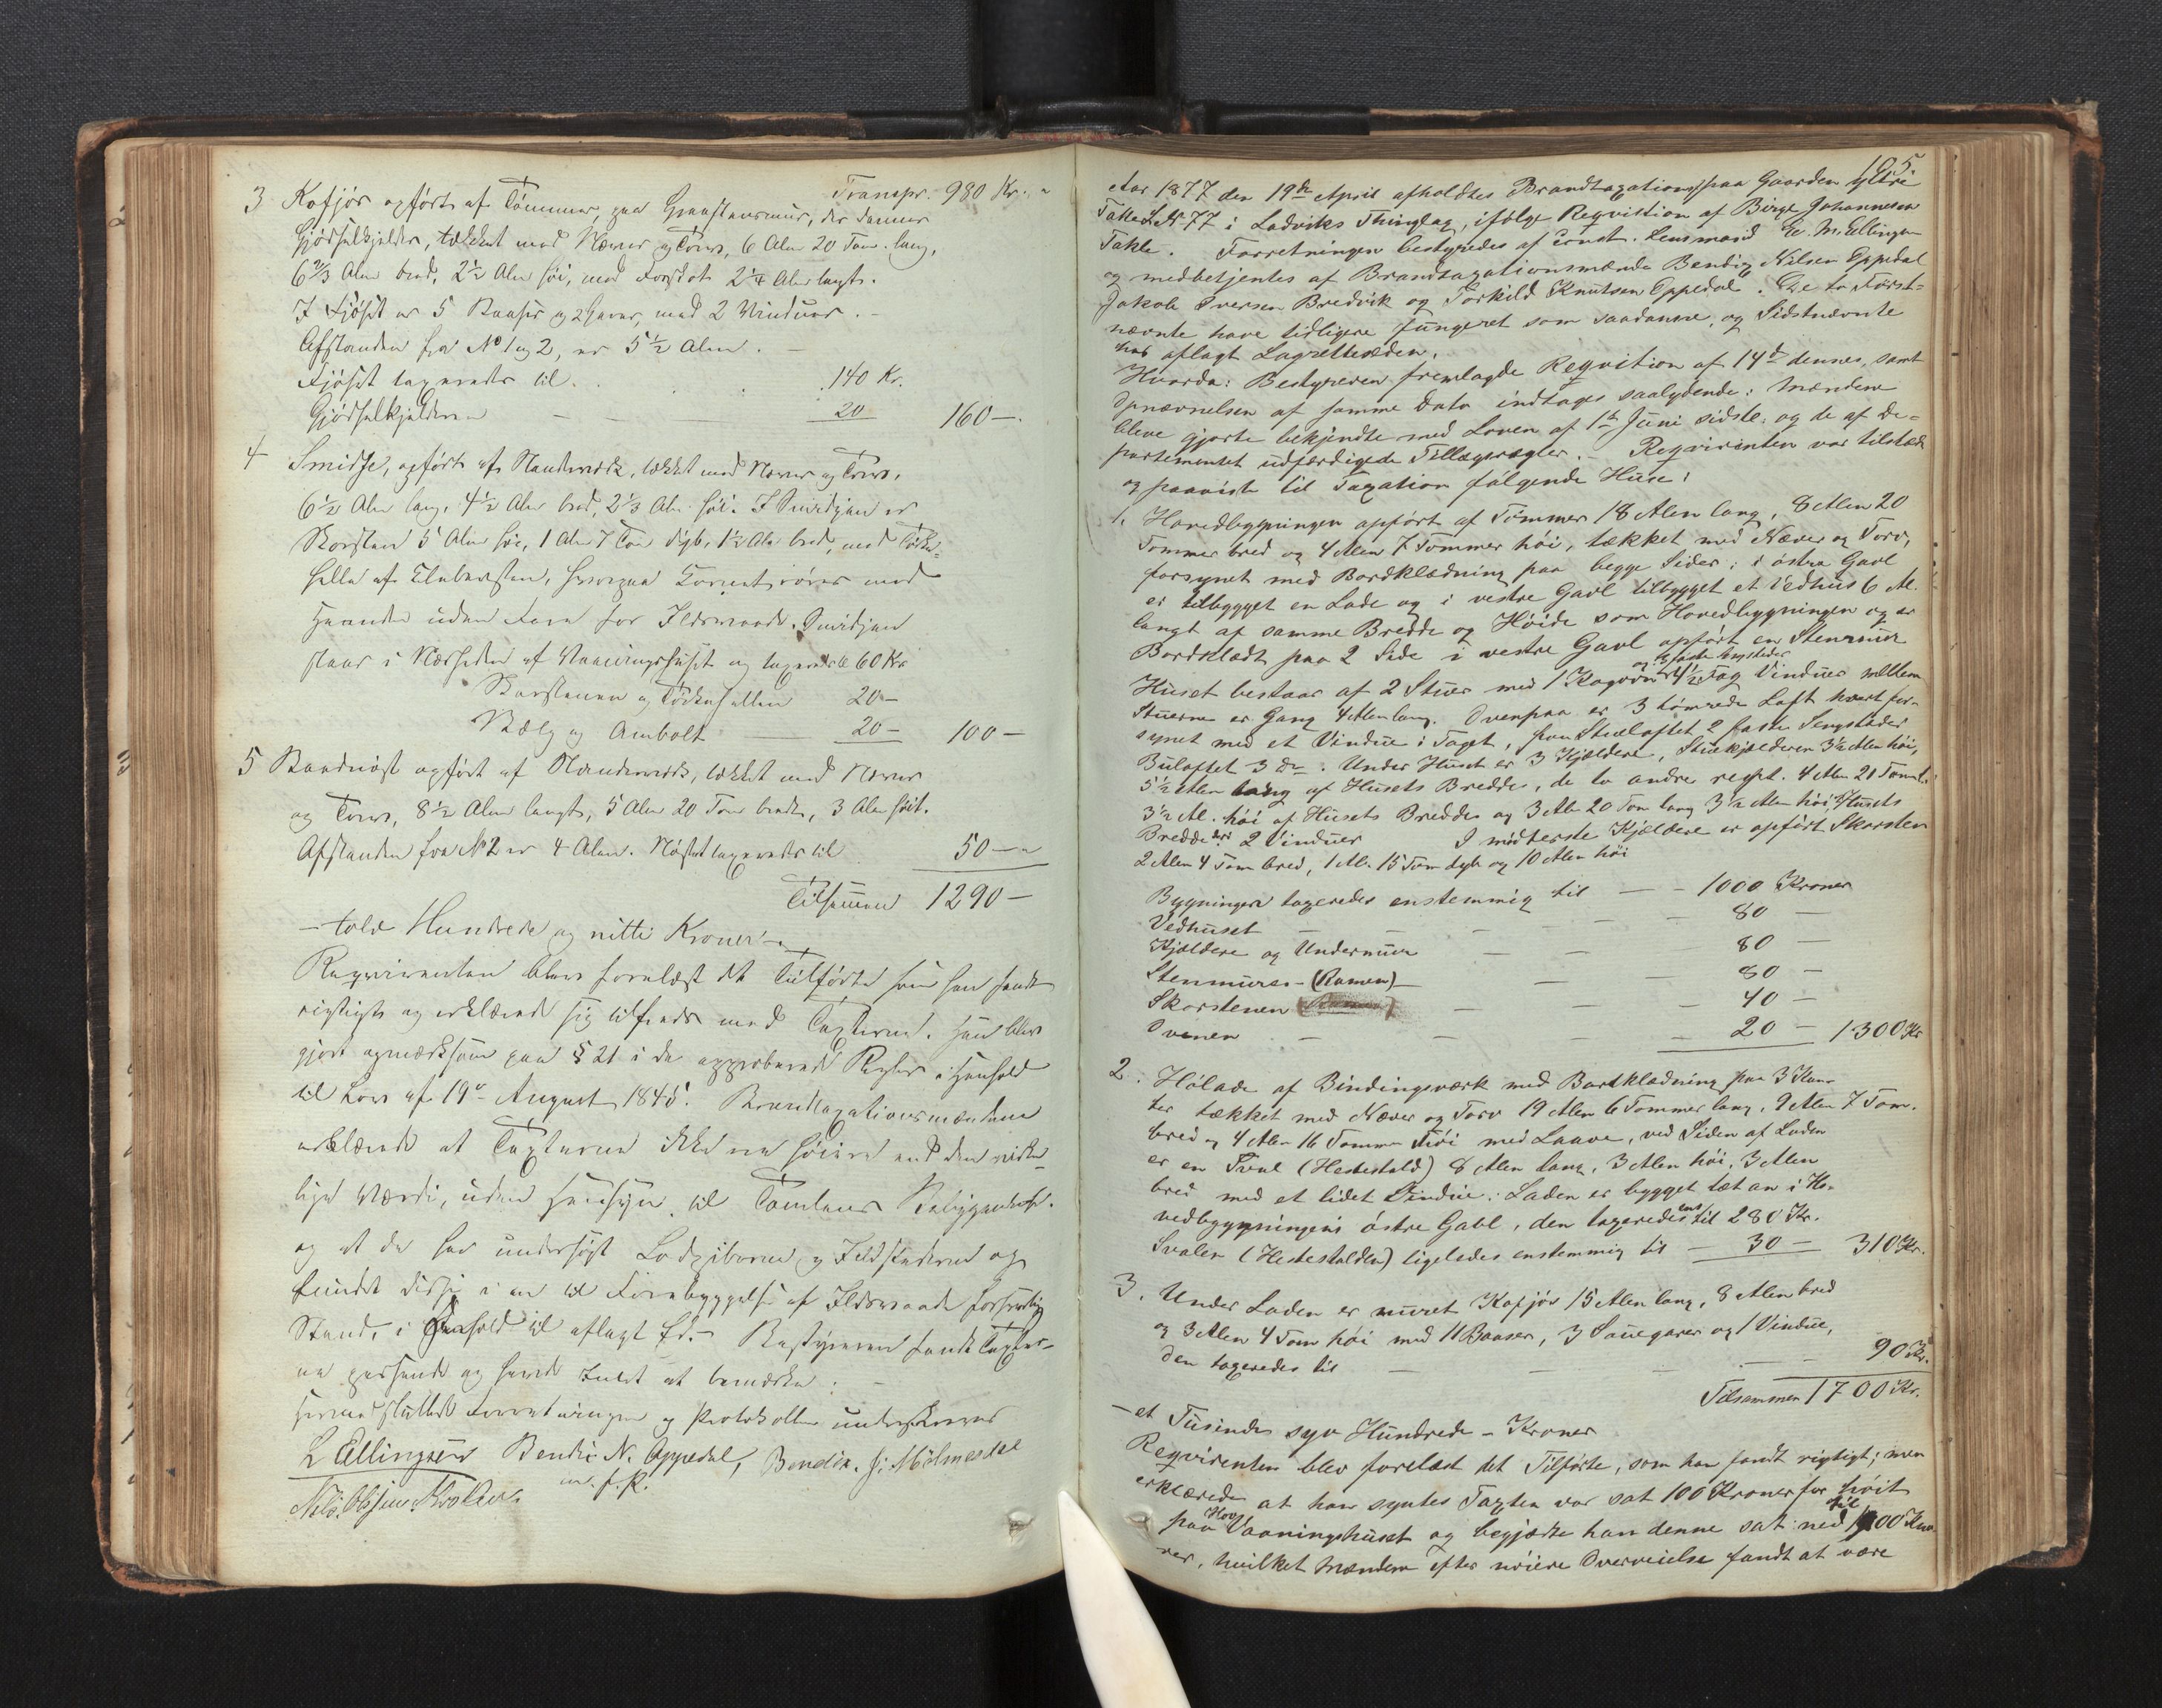 Transpr. 980 Kr. "
3 Kofjós opført af Tømmer, paa Graastensmur, der danner
Gjødselkjelder, tækket med Næver og Torv, 6 Alen 20 Tom. lang,
6 2/3 Alen bred, 2 1/2 Alen høi, med Forskot 2 1/4 Alen langt.
I Fjøset er 5 Baaser og 2 Garer, med 2 Vinduer. -
Afstanden fra No 1 og 2, er 5 1/2 Alen. -
Fjøset taxeredes til . . . 140 Kr.
Gjødselkjelderen — — 20 160 —.
4 Smidje, opført af Standerværk, tækket med Næver og Torv,
6 1/2 Alen lang, 4 1/2 Alen bred, 2 1/3 Alen høi. I Smidjen er
Skorsten 5 Alen høi, 1 Alen 7 Tom dyb, 1 1/2 Alen bred, med
helle af Klebersten, hvorpaa med
uden Fare for Ildsvaade. Smidjen
staar i Nærheden af Vaaningshuset og taxeredes til 60 Kr
Skorstenen og 20 —
Bælg og Ambolt — 20 — 100 —
5 Baadnøst opført af Standerværk, tækket med Næver
og Torv, 8 1/2 Alen langt, 5 Alen 20 Tom bredt, 3 Alen høit.
Afstanden fra No 2 er 4 Alen. Nøstet taxeredes til 50 — "
Tilsammen 1290 —
— tolv Hundrede og nitti Kroner —
Reqvirenten blev forelæst det Tilførte som han fandt
rigtigt og erklærede sig tilfreds med Taxterne. Han blev
gjort opmærksom paa § 21 i de approberede Regler i Henhold
til Lov af 19de August 1845. Brandtaxationsmændene
erklærede at Taxterne ikke er høiere end den virke-
lige Værdi, uden Hensyn til Tomtens Beliggenhed.
og at de har undersøgt Ildstederne og
fundet disse i en til Forebyggelse af Ildsvaade forsvarlig
Stand, i Henhold til aflagt Ed. — Bestyreren fandt Taxter-
ne passende og havde Intet at bemærke: —
Hermed sluttet Forretningen og Protokollen underskreves
L Ellingsen Bendix N. Oppedal, Bendix. J: Mölmesdal
m. f. P.
105
Aar 1877 den 19de April afholdtes Brandtaxation paa Gaarden Ytre
Takle L. No 77 i Ladviks Thinglag, ifølge Reqvistion af Birge Johannesen
Takle. Forretningen bestyredes af const. Lensmand Ew. M. Ellingsen
og medbetjentes af Brandtaxationsmænde Bendix Nilsen Oppedal
Jakob Iversen Bredvik og Torkild Knutsen Oppedal. De to Først-
nævnte have tidligere fungeret som saadanne, og Sidstnævnte
har aflagt Lagretteeden.
Hvorda: Bestyreren fremlagde Reqvition af 14de dennes, samt
Opnævnelsen af samme Dato indtages saalydende: Mændene
bleve gjorte bekjendte med Loven af 1ste Juni sidstl. og de af De-
partementet udfærdigede Tillægsregler. — Reqvirenten var tilstede
og paaviste til Taxation følgende Huse:
1. Hovedbygningen opført af Tømmer 18 Alen lang, 8 Alen 20
Tommer bred og 4 Alen 7 Tommer høi, tækket med Næver og Torv,
forsynet med Bordklædning paa begge Sider; i østre Gavl
er tilbygget en Lade og i vestre Gavl tilbygget et Vedhus 6 Al.
langt af samme Bredde og Høide som Hovedbygningen og er
Bordklædt paa 2 Side i vestre Gavl opført en Stenmur
og 3 faste Sengsteder
Huset bestaar af 2 Stuer med 1 Kagovn 4 1/2 Fag Vinduer mellem
Stuerne er Gang 4 Alen lang. Ovenpaa er 3 tømrede Loft hvert for-
synet med et Vindue i Taget, paa Stueloftet 2 faste Sengsteder
Buloftet 3 do. Under Huset er 3 Kjældere, Stuekjælderen 3 1/2 Alen høi,
5 1/2 Alen lang af Husets Bredde, de to andre respt. 4 Alen 21 Tom l.
3 1/2 Al. høi af Husets Bredde og 3 Alen 20 Tom lang 3 1/2 Alen høi af Husets
Bredde der 2 Vinduer I midterste Kjældere er opført Skorsten
2 Alen 4 Tom bred, 1 Al. 15 Tom dyb og 10 Alen høi
Bygningen taxeredes enstemmig til — — 1000 Kroner
Vedhuset — — — — — 80 —
Kjældere og Undermur — — — 80 —
Stenmuren - (Ramen) — — — 80 —
Skorstenen — — — 40 —
Ovnen — — — — — 20 — 1300 Kr
2. Hølade af Bindingsværk med Bordklædning paa 3 Kan-
ter tækket med Næver og Torv 19 Alen 6 Tommer lang, 9 Alen 7 Tom.
bred og 4 Alen 16 Tommer høi med Laave, ved Siden af Laden
er en Sval (Hestestald) 8 Alen lang, 3 Alen høi, 3 Alen
bred med et lidet Vindue: Laden er bygget tæt an i Ho-
vedbygningens østre Gavl, den taxeredes ens til 280 Kr.
Svalen (Hestestalden) ligeledes enstemmig til — 30 — 310 Kr.
3. Under Laden er muret Kofjós 15 Alen lang, 8 Alen bred
og 3 Alen 4 Tom høi med 11 Baaser, 3 Sauegarer og 1 Vindue,
den taxeredes til — — — — 90 Kr.
Tilsammen 1700 Kr.
— et Tusinde syv Hundrede — Kroner
Reqvirenten blev forelæst det Tilførte, som han fandt rigtigt; men
erklærede at han syntes Taxten var sat 100 Kroner for høit
paa Hov Vaaningshuset og begjærte han denne sat ned til 1000 Kro-
ner, hvilket Mændene efter nøiere Overveielse fandt at være